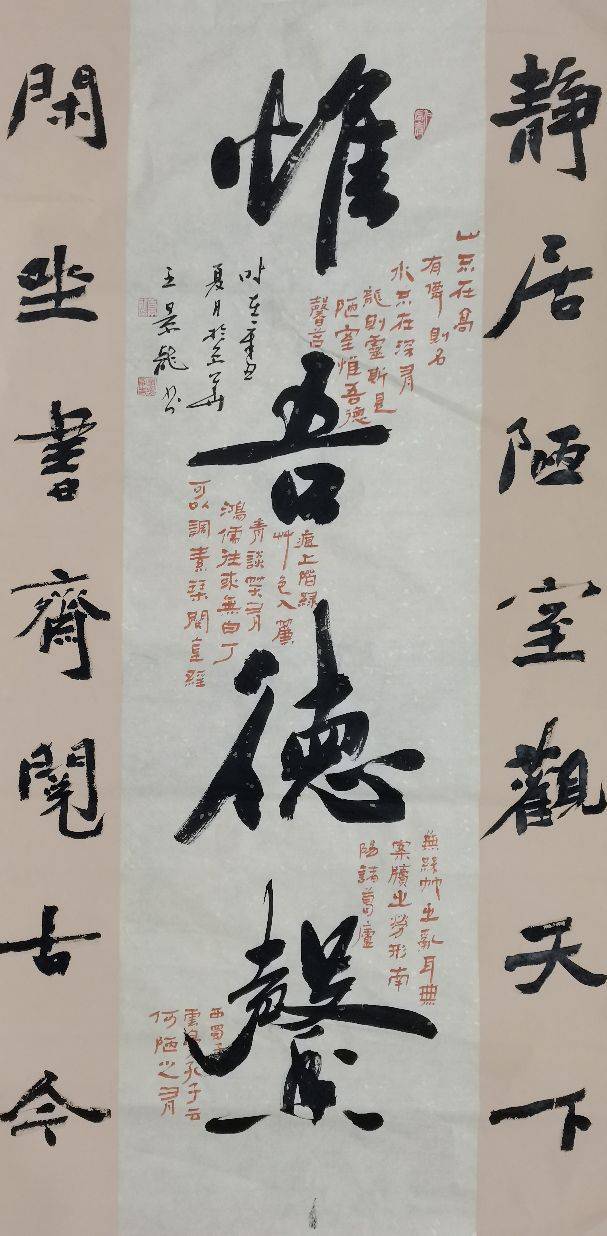 靜居陋室觀天下
惟吾德馨
山不在高
有僊則名
水不在深有
龍則靈斯是
陋室惟吾德
馨苔
痕上階綠
艸色入簾
青談笑有
鴻儒往來無白丁
可以調素琴閱金經
無絲竹之亂耳無
案牘之勞形南
陽諸葛廬
西蜀子
雲亭孔子云
何陋之有
夏月於
王景龍書
閑坐書齋閱古今